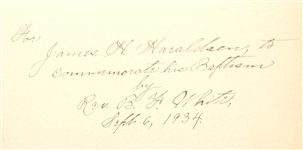 For
James H. Haraldson, to
commemorate his Baptism
by
Rev. B. F. White,
Sept. 6, 1934.